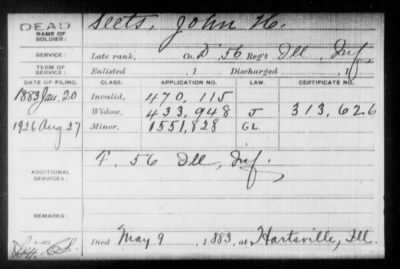 DEAD
NAME OF SOLDIER: Seets, John H.
SERVICE: Late rank, Co. D 56 Reg't Ill. Inf.
TERM OF SERVICE: Enlisted , 1 Discharged , 1
DATE OF FILING. CLASS. APPLICATION NO. LAW. CERTIFICATE NO.
1883 Jan. 20 Invalid, 470,115
Widow, 433,948 J 313,626
1926 Aug. 27 Minor, 1551,828 GL.
ADDITIONAL SERVICES: F. 56 Ill. Inf.
REMARKS:
Died May 9, 1883, at Hartsville, Ill.